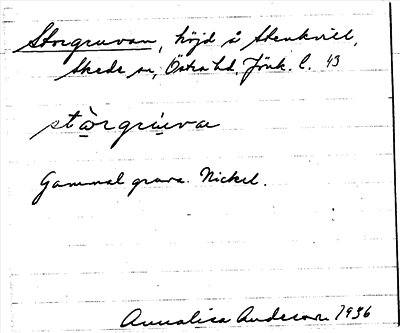 Storgruvan, höjd å Stenkvill,
Skede sn, Östra hd, Jönk. l. 43
stòrgruva
Gammal gruva. Nickel.
Annalisa Anderson 1936